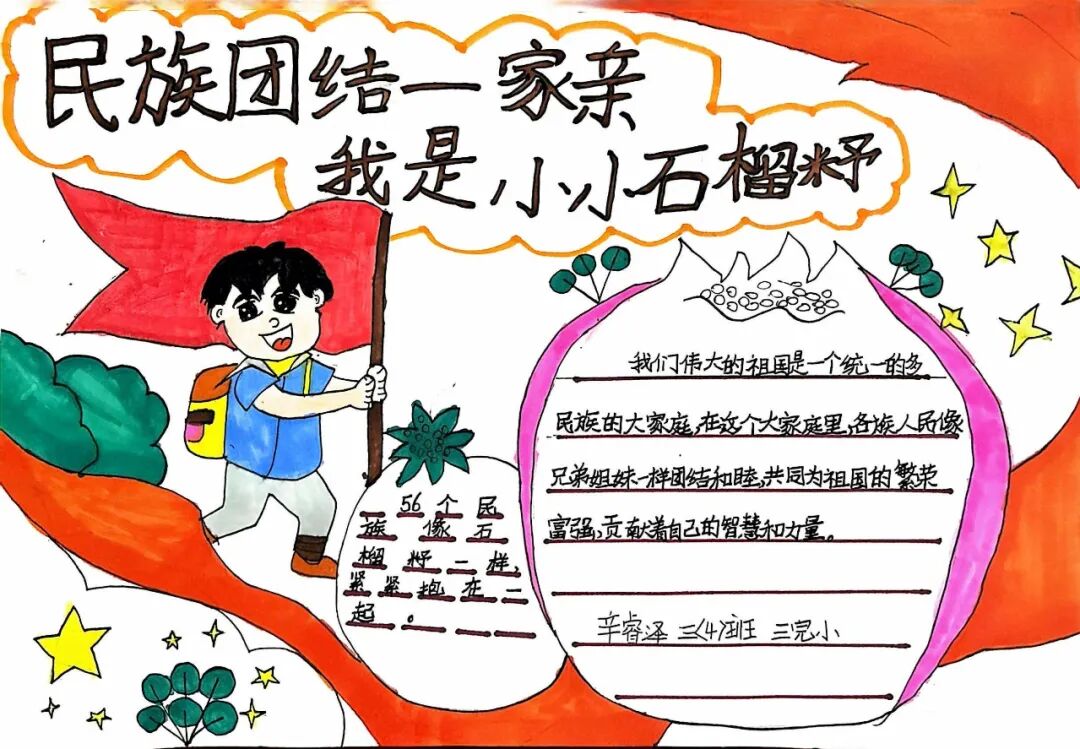 民族团结一家亲
我是小小石榴籽
我们伟大的祖国是一个统一的多
民族的大家庭,在这个大家庭里,各族人民像
兄弟姐妹一样团结和睦,共同为祖国的繁荣
富强,贡献着自己的智慧和力量。
辛睿泽 三(4)班 三完小
56个民
族像石
榴籽一样,
紧紧抱在一
起。